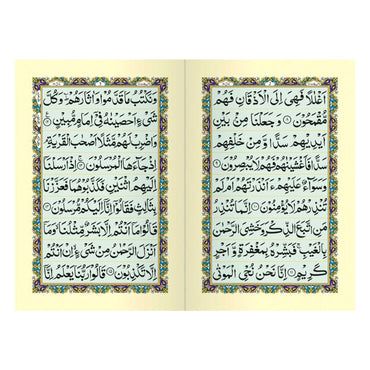 اَغْلٰلًا فَهِیَ اِلَی الْاَذْقَانِ فَهُمْ
مُّقْمَحُوْنَ ۝ وَ جَعَلْنَا مِنْۢ بَیْنِ
اَیْدِیْهِمْ سَدًّا وَّ مِنْ خَلْفِهِمْ
سَدًّا فَاَغْشَیْنٰهُمْ فَهُمْ لَا یُبْصِرُوْنَ ۝
وَ سَوَآءٌ عَلَیْهِمْ ءَاَنْذَرْتَهُمْ اَمْ لَمْ
تُنْذِرْهُمْ لَا یُؤْمِنُوْنَ ۝ اِنَّمَا تُنْذِرُ
مَنِ اتَّبَعَ الذِّكْرَ وَ خَشِیَ الرَّحْمٰنَ
بِالْغَیْبِ ۚ فَبَشِّرْهُ بِمَغْفِرَةٍ وَّ اَجْرٍ
كَرِیْمٍ ۝ اِنَّا نَحْنُ نُحْیِ الْمَوْتٰی
وَ نَكْتُبُ مَا قَدَّمُوْا وَ اٰثَارَهُمْ ؕ وَ كُلَّ
شَیْءٍ اَحْصَیْنٰهُ فِیْۤ اِمَامٍ مُّبِیْنٍ ۝
وَ اضْرِبْ لَهُمْ مَّثَلًا اَصْحٰبَ الْقَرْیَةِ ۘ
اِذْ جَآءَهَا الْمُرْسَلُوْنَ ۝ اِذْ اَرْسَلْنَاۤ
اِلَیْهِمُ اثْنَیْنِ فَكَذَّبُوْهُمَا فَعَزَّزْنَا
بِثَالِثٍ فَقَالُوْۤا اِنَّاۤ اِلَیْكُمْ مُّرْسَلُوْنَ ۝
قَالُوْا مَاۤ اَنْتُمْ اِلَّا بَشَرٌ مِّثْلُنَا ۙ وَ مَاۤ
اَنْزَلَ الرَّحْمٰنُ مِنْ شَیْءٍ ۙ اِنْ اَنْتُمْ
اِلَّا تَكْذِبُوْنَ ۝ قَالُوْا رَبُّنَا یَعْلَمُ اِنَّاۤ